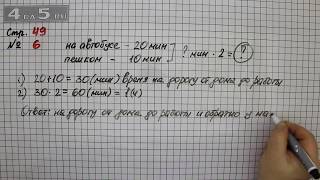 4 a 5 ru
Стр. 49
№ 6 на автобусе - 20 мин
пешком - 10 мин ] ? мин · 2 = ?
1) 20+10=30(мин) время на дорогу от дома до работы
2) 30·2=60(мин)=1(ч)
Ответ: на дорогу от дома до работы и обратно у на